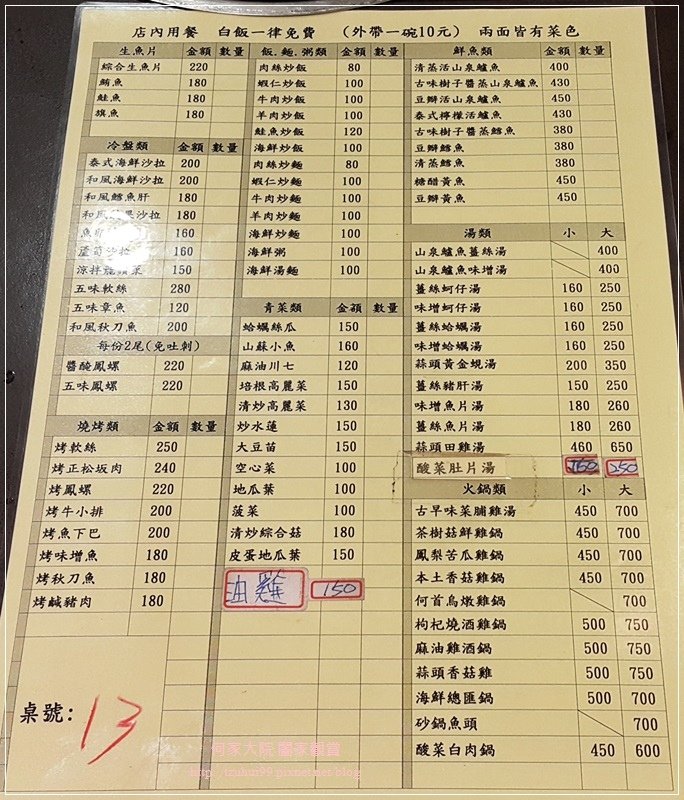 店內用餐 白飯一律免費 (外帶一碗10元) 兩面皆有菜色
生魚片 金額 數量
綜合生魚片 220
鮪魚 180
鮭魚 180
旗魚 180
冷盤類 金額 數量
泰式海鮮沙拉 200
和風海鮮沙拉 200
和風鱈魚肝 180
和風 沙拉 180
魚 160
蘆筍沙拉 160
涼拌龍鬚菜 150
五味軟絲 280
五味章魚 120
和風秋刀魚 200
每份2尾(免吐刺)
醬醃鳳螺 220
五味鳳螺 220
燒烤類 金額 數量
烤軟絲 250
烤正松坂肉 240
烤鳳螺 220
烤牛小排 200
烤魚下巴 200
烤味增魚 180
烤秋刀魚 180
烤鹹豬肉 180
桌號: 13
飯.麵.粥類 金額 數量
肉絲炒飯 80
蝦仁炒飯 100
牛肉炒飯 100
羊肉炒飯 100
鮭魚炒飯 120
海鮮炒飯 100
肉絲炒麵 80
蝦仁炒麵 100
牛肉炒麵 100
羊肉炒麵 100
海鮮炒麵 100
海鮮粥 100
海鮮湯麵 100
青菜類 金額 數量
蛤蠣絲瓜 150
山蘇小魚 160
麻油川七 120
培根高麗菜 150
清炒高麗菜 130
炒水蓮 150
大豆苗 150
空心菜 100
地瓜葉 100
菠菜 100
清炒綜合菇 180
皮蛋地瓜葉 150
油雞 150
鮮魚類 金額 數量
清蒸活山泉鱸魚 400
古味樹子醬蒸山泉鱸魚 430
豆瓣活山泉鱸魚 450
泰式檸檬活鱸魚 430
古味樹子醬蒸鱈魚 380
豆瓣鱈魚 380
清蒸鱈魚 380
糖醋黃魚 450
豆瓣黃魚 450
湯類 小 大
山泉鱸魚薑絲湯 400
山泉鱸魚味增湯 400
薑絲蚵仔湯 160 250
味增蚵仔湯 160 250
薑絲蛤蠣湯 160 250
味增蛤蠣湯 160 250
蒜頭黃金蜆湯 200 350
薑絲豬肝湯 150 250
味增魚片湯 180 260
薑絲魚片湯 180 260
蒜頭田雞湯 460 650
酸菜肚片湯 160 250
火鍋類 小 大
古早味菜脯雞湯 450 700
茶樹菇鮮雞鍋 450 700
鳳梨苦瓜雞鍋 450 700
本土香菇雞鍋 450 700
何首烏燉雞鍋 700
枸杞燒酒雞鍋 500 750
麻油雞酒鍋 500 750
蒜頭香菇雞 500 750
海鮮總匯鍋 500 700
砂鍋魚頭 700
酸菜白肉鍋 450 600
何家大院 闔家觀賞
http://tzuhui99.pixnet.net/blog